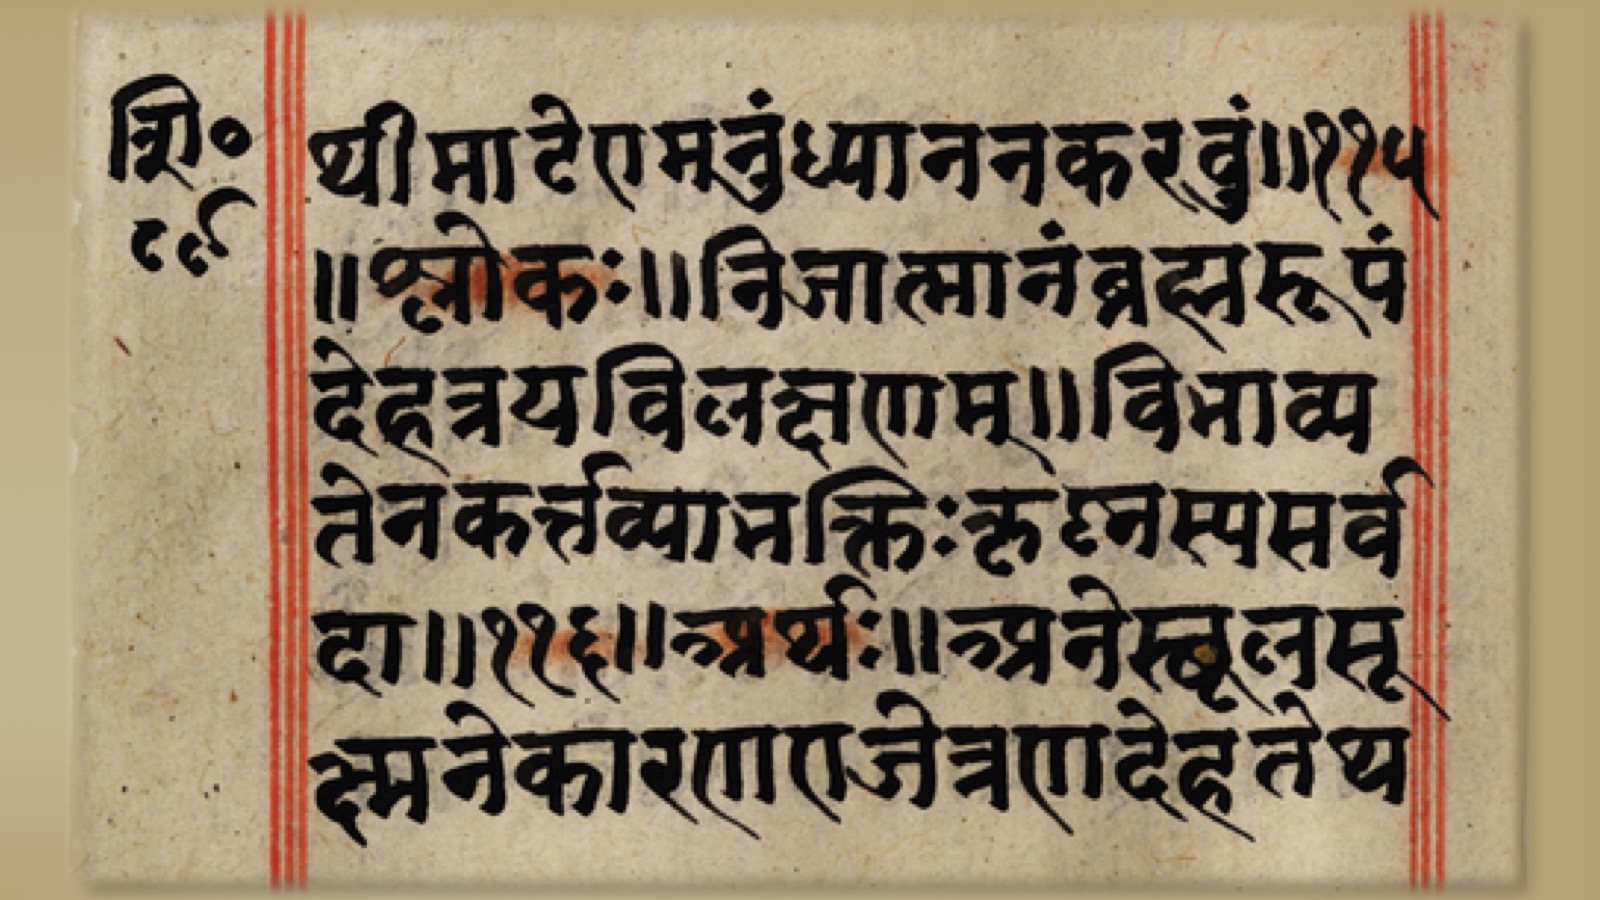 शि॰
८९
थी माटे ए मनुं ध्यान न करवुं॥११५
॥श्लोकः॥निजात्मानं ब्रह्मरूपं
देहत्रयविलक्षणम्॥विभाव्य
तेन कर्त्तव्या भक्तिः कृष्नस्य सर्व
दा॥११६॥अर्थः॥अने स्थूल सू
क्ष्म ने कारण ए जे त्रण देह ते थ